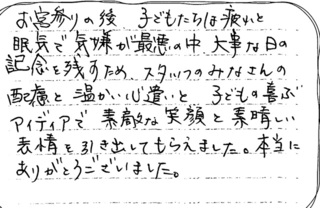 お宮参りの後 子どもたちは疲れと
眠気で気嫌が最悪の中 大事な日の
記念を残すため、スタッフのみなさんの
配慮と温かい心遣いと 子どもの喜ぶ
アイディアで 素敵な笑顔と素晴しい
表情を引き出してもらえました。本当に
ありがとうございました。